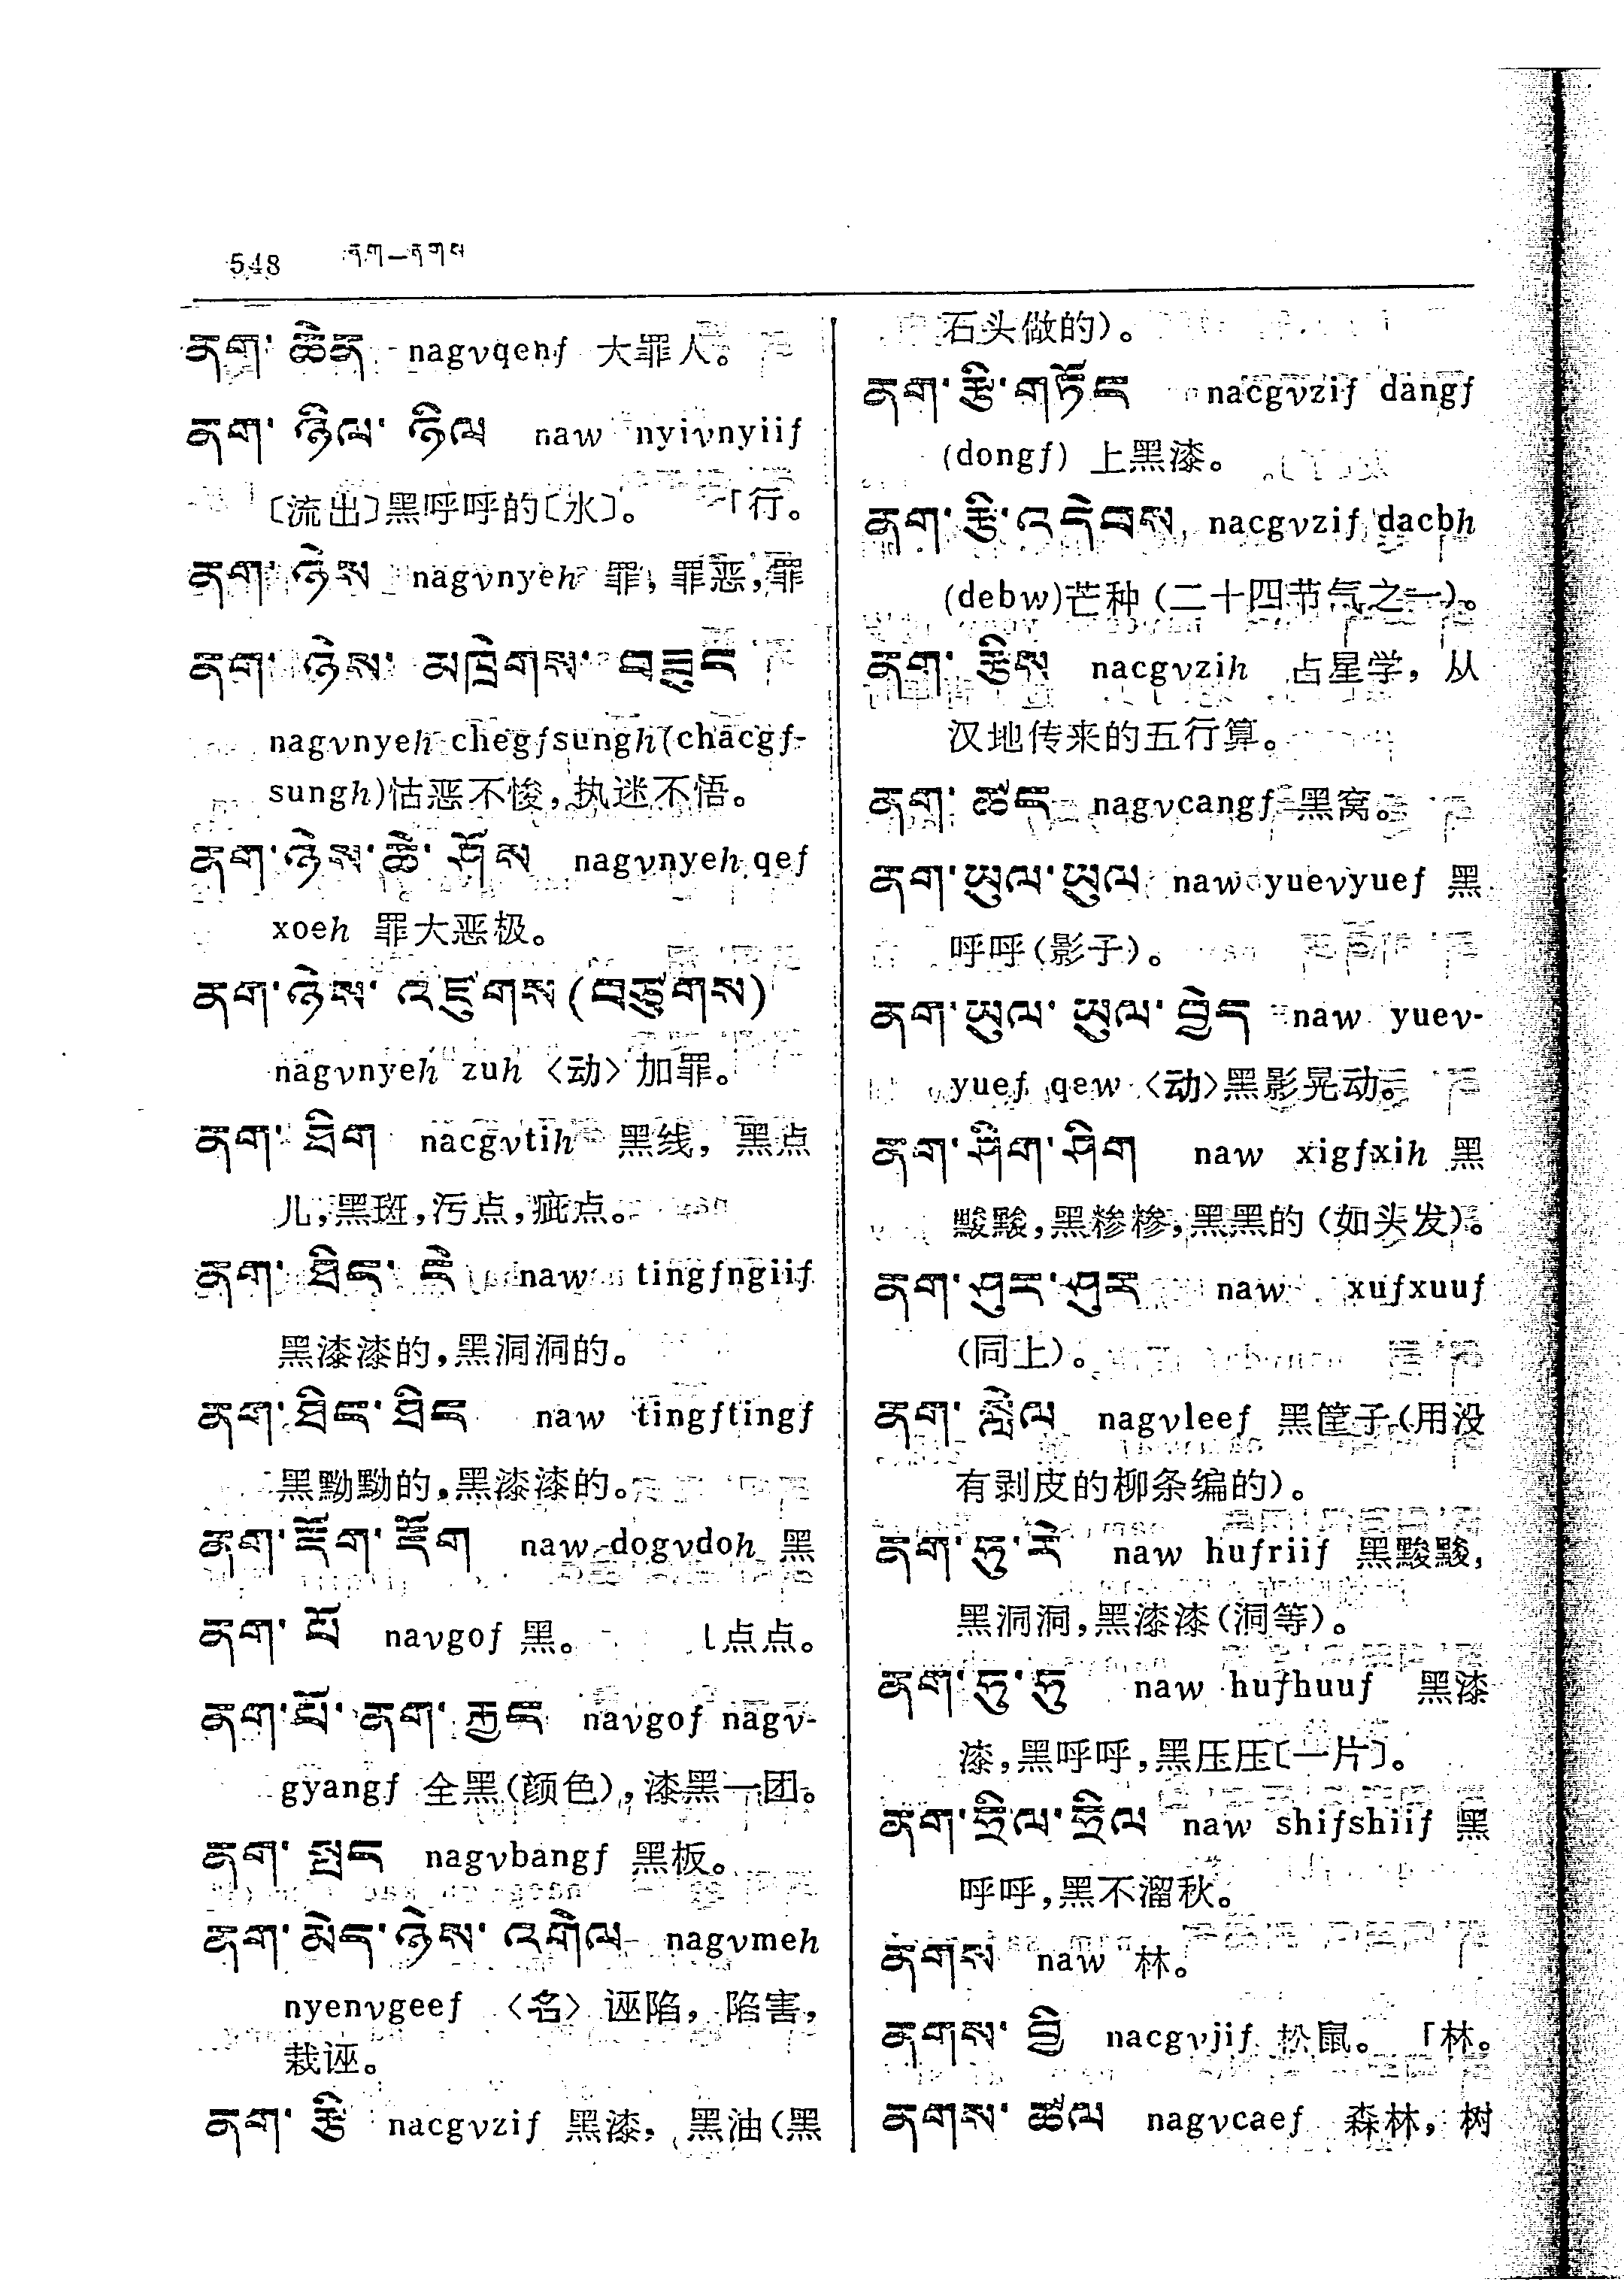 548 ནག—ནགས
ནག་ ཆེན nagvqenf 大罪人。
ནག་ ཉིལ་ ཉིལ naw nyivnyiif
〔流出〕黑呼呼的〔水〕。 「行。
ནག་ ཉེས nagvnyeh 罪,罪恶,罪
ནག་ ཉེས་ མཁྲེགས་ བཟུང
nagvnyeh chegfsungh(chacgf-
sungh)怙恶不悛,执迷不悟。
ནག་ཉེས་ཆེ་ ཤོས nagvnyeh qef
xoeh 罪大恶极。
ནག་ཉེས་ འཛུགས(བཙུགས)
nagvnyeh zuh 〈动〉加罪。
ནག་ ཐིག nacgvtih 黑线, 黑点
儿,黑斑,污点,疵点。
ནག་ ཐིང་ ངེ naw tingfngiif
黑漆漆的,黑洞洞的。
ནག་ཐིང་ཐིང naw tingftingf
黑黝黝的,黑漆漆的。
ནག་རྡོག་རྡོག naw dogvdoh 黑
ནག་ པོ navgof 黑。 〔点点。
ནག་པོ་ ནག་ རྐྱང navgof nagv-
gyangf 全黑(颜色),漆黑一团。
ནག་ སྤང nagvbangf 黑板。
ནག་མེད་ཉེས་ འགེལ nagvmeh
nyenvgeef 〈名〉 诬陷, 陷害,
栽诬。
ནག་ རྩི nacgvzif 黑漆, 黑油(黑
石头做的)。
ནག་རྩི་གཏོང nacgvzif dangf
(dongf) 上黑漆。
ནག་རྩི་འདེབས nacgvzif dacbh
(debw)芒种(二十四节气之一)。
ནག་ རྩིས nacgvzih 占星学, 从
汉地传来的五行算。
ནག་ ཚང nagvcangf 黑窝。
ནག་ཡུལ་ཡུལ naw yuevyuef 黑
呼呼(影子)。
ནག་ཡུལ་ ཡུལ་བྱེད naw yuev-
yuef qew 〈动〉黑影晃动。
ནག་ཤིག་ཤིག naw xigfxih 黑
黢黢,黑糁糁,黑黑的(如头发)。
ནག་ཤུར་ཤུར naw xufxuuf
(同上)。
ནག་ སླེལ nagvleef 黑筐子(用没
有剥皮的柳条编的)。
ནག་ཧུ་རེ naw hufriif 黑黢黢,
黑洞洞,黑漆漆(洞等)。
ནག་ཧུ་ཧུ naw hufhuuf 黑漆
漆,黑呼呼,黑压压〔一片〕。
ནག་ཧྲིལ་ཧྲིལ naw shifshiif 黑
呼呼,黑不溜秋。
ནགས naw 林。
ནགས་ བྱི nacgvjif 松鼠。 「林。
ནགས་ ཚལ nagvcaef 森林, 树